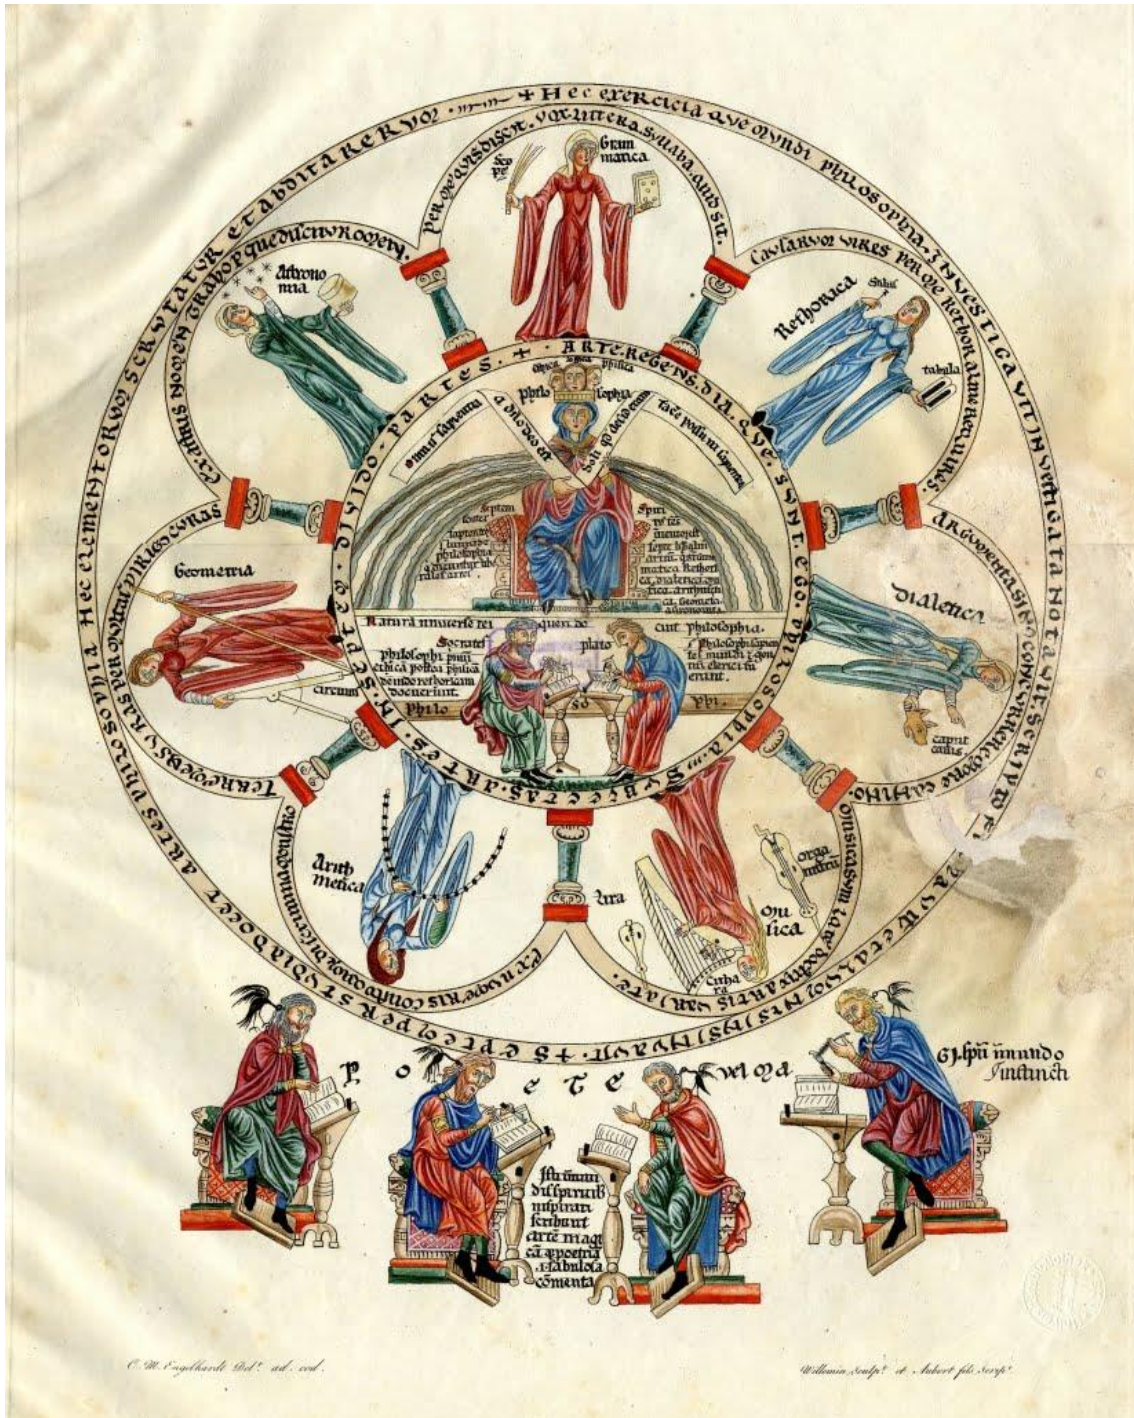 + Hec exercicia que mundi philosophia
investigavit investigata notavit
scripto
et alumnis insinuavit
+ Septem per studia docet artes philosophia
Hec elementorum scrutatur et abdita rerum
per me quivis discit vox littera syllaba quid sit
Gram
matica
Sco
pe
Causarum vires per me rethor alme requires
Rethorica
Stilus
tabula
Argumenta sino concurrere more canino
Dialetica
caput
canis
Musica sum late doctrix artis variate
Musica
orga
nistrum
Citha
ra
Lira
Ex numeris consto quorum discrimina monstro
Arith
metica
Terre mensuras per multas dirigo curas
Geometria
circinus
Ex astris nomen traho per que discitur omen
Astrono
mia
+ Arte regens dia que sunt ego philosophia
Subiectas artes in septem divido partes
ethica logica phisica
Philo sophia
Omnis sapientia
a dño deo est
soli qd desiderant
facere possunt sapientes
Septem
fontes
sapientie
fluunt de
philosophia
q dicuntur libe
rales artes
Spiri
tus scs
inventor est
septe liberaliu
artiu q sunt gra
matica Rethori
ca, dialetica mu
sica, arithmeti
ca, geometria
astronomia
Naturã universe rei queri do cuit philosophia.
Socrates
plato
philosophi primu
ethicã postea phisicã
deinde rethoricam
docuerunt.
philosophi sapien
tes mundi & gen
tiu clerici fu
erunt.
Philo so phi.
Poete vel magi
Spũ ĩmundo
ĩnstincti
Isti ĩmun
dis spiritib
inspirati
scribunt
artẽ magi
cã & poetriã
.i. fabulosa
cõmenta
C. M. Engelhardt Delt. ad. cod.
Willemin Sculpt. et Aubert fils Scripst.